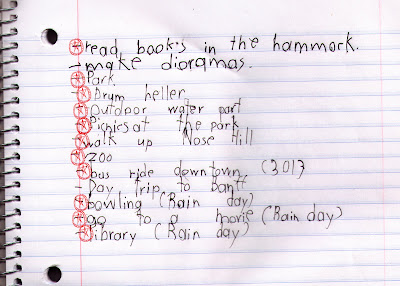 - read books in the hammock.
- make dioramas.
- Park
- Drum heller
- Outdoor water part
- Picnics at the park
- walk up Nose Hill
- zoo
- bus ride downtown, (301)
- Day trip to Banff
- bowling (Rain day)
- go to a movie (Rain day)
- library (Rain day)